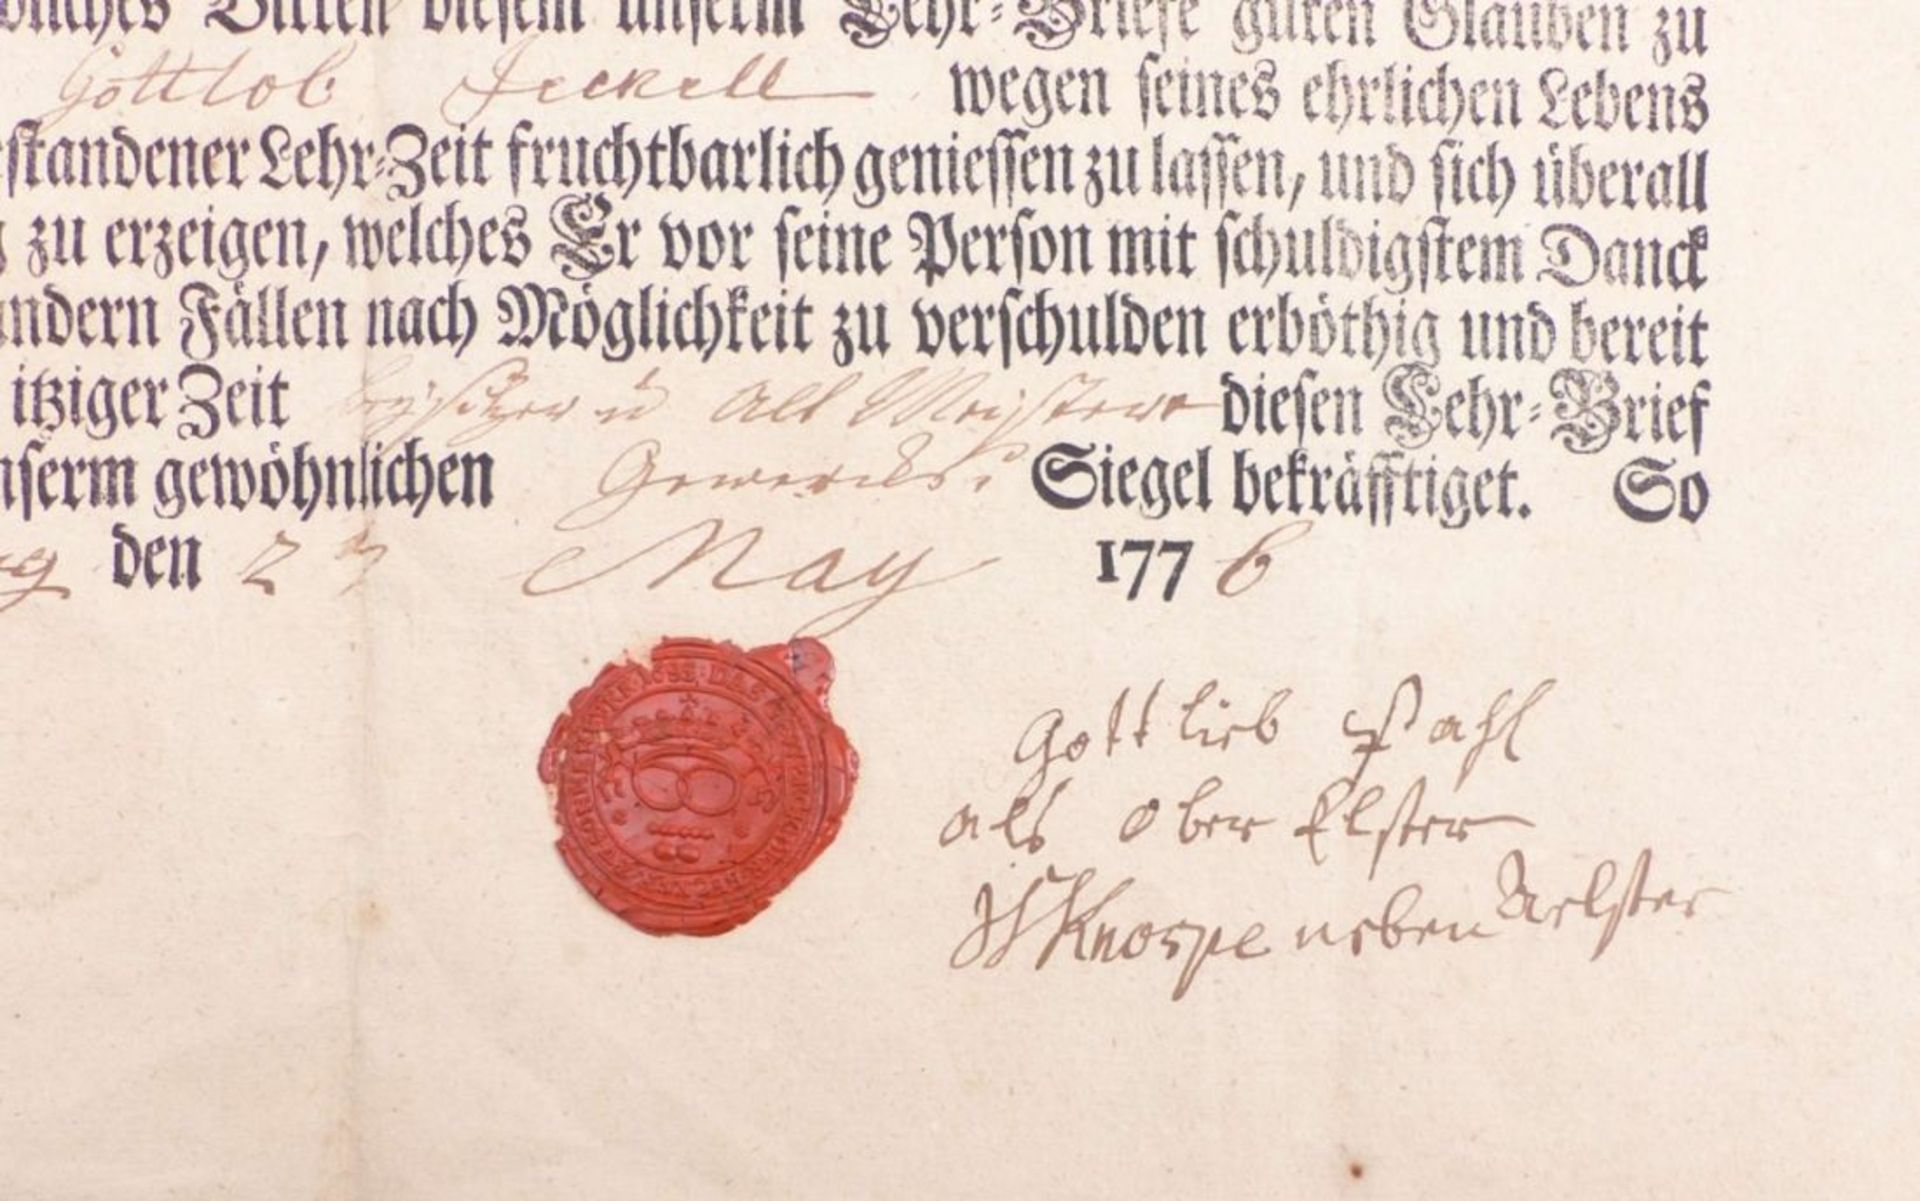 Bitten diesem unserm Lehr-Briefe guten Glauben zu
Gottlob Jeckell wegen seines ehrlichen Lebens
standener Lehr-Zeit fruchtbarlich geniessen zu lassen, und sich überall
zu erzeigen, welches Er vor seine Person mit schuldigstem Danck
andern Fällen nach Möglichkeit zu verschulden erböthig und bereit
itziger Zeit beysitzer u Alt Meistere diesen Lehr-Brief
unserm gewöhnlichen Gewercks: Siegel bekräfftiget. So
den 27 May 1776
Gottlieb Pahl
als ober Elster
Knospe neben Aelster